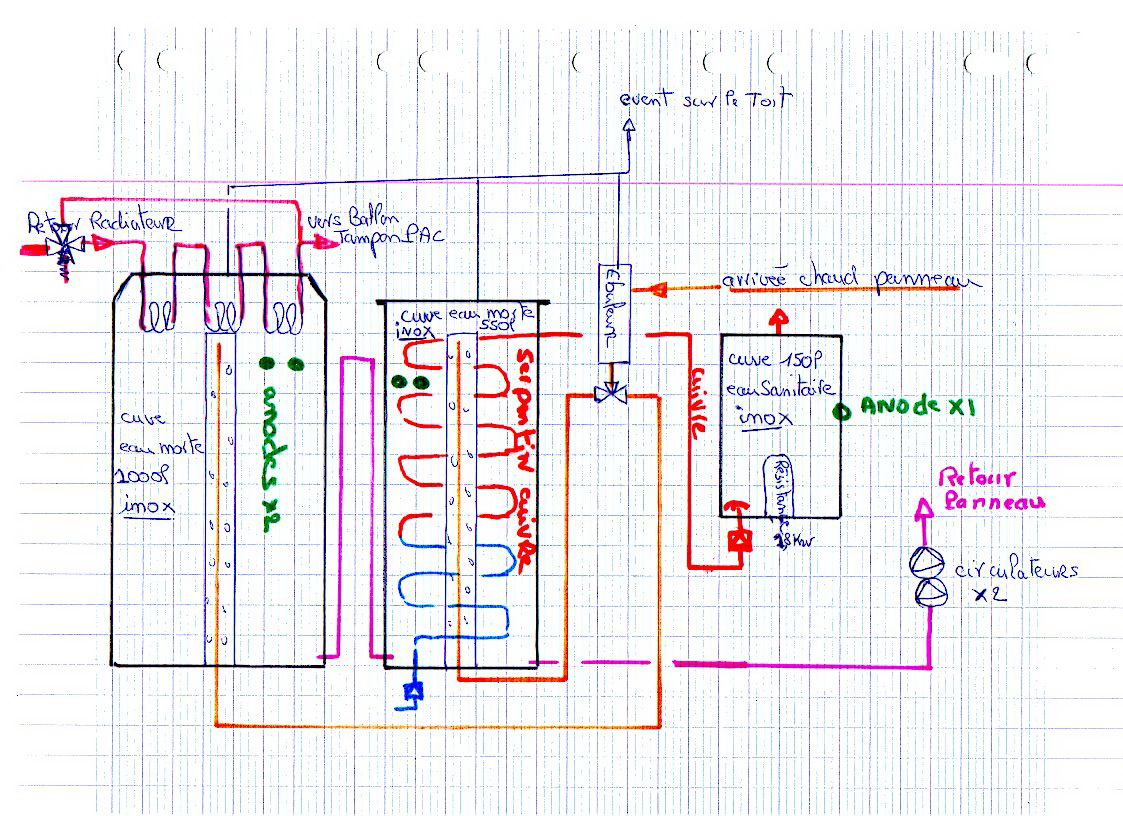 event sur le Toit
Retour Radiateur
vers Ballon
Tampon PAC
Ebulleur
arrivée chaud panneau
cuve eau morte
550l
inox
Serpentin cuivre
cuivre
cuve 150l
eau Sanitaire
inox
ANode X1
Résistance
cuve
eau morte
1000l
inox
anodes x2
Retour
Panneau
circulateurs
x2